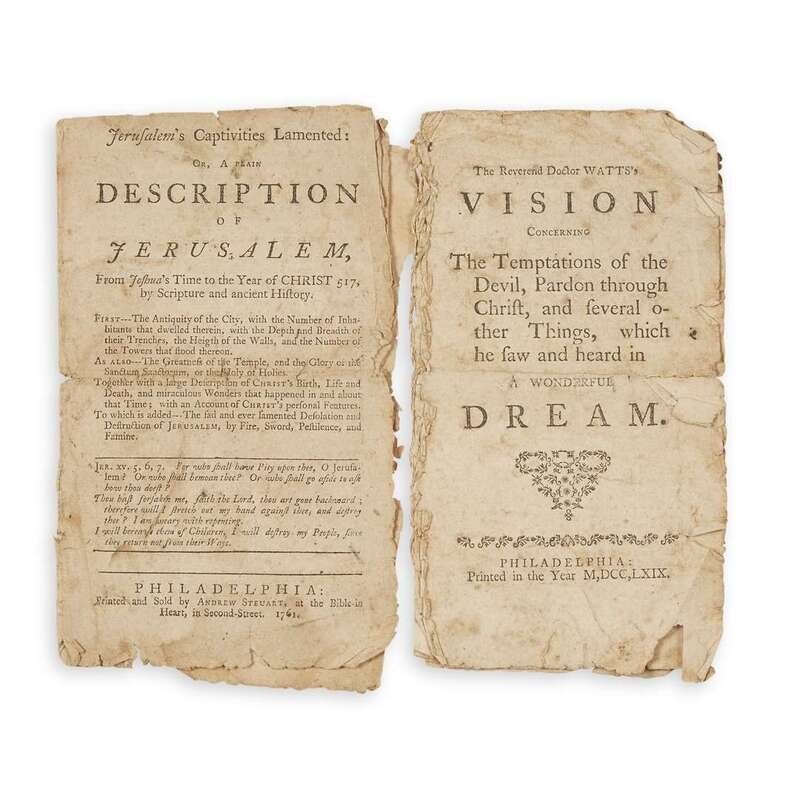 Jerusalem's Captivities Lamented:
Or, A plain
DESCRIPTION
OF
JERUSALEM,
From Joshua's Time to the Year of CHRIST 517,
by Scripture and ancient History.
First---The Antiquity of the City, with the Number of Inha-
bitants that dwelled therein, with the Depth and Breadth of
their Trenches, the Heigth of the Walls, and the Number of
the Towers that stood thereon.
As also---The Greatness of the Temple, and the Glory of the
Sanctum Sanctorum, or the Holy of Holies.
Together with a large Description of Christ's Birth, Life and
Death, and miraculous Wonders that happened in and about
that Time; with an Account of Christ's personal Features.
To which is added---The sad and ever lamented Desolation and
Destruction of Jerusalem, by Fire, Sword, Pestilence, and
Famine.
Jer. XV. 5, 6, 7. For who shall have Pity upon thee, O Jerusa-
lem? Or who shall bemoan thee? Or who shall go aside to ask
how thou doest?
Thou hast forsaken me, saith the Lord, thou art gone backward;
therefore will I stretch out my hand against thee, and destroy
thee? I am weary with repenting.
I will bereave them of Children, I will destroy my People, since
they return not from their Ways.
PHILADELPHIA:
Printed and Sold by Andrew Steuart, at the Bible-in
Heart, in Second-Street. 1761.
The Reverend Doctor WATTS's
VISION
Concerning
The Temptations of the
Devil, Pardon through
Christ, and several o-
ther Things, which
he saw and heard in
A WONDERFUL
DREAM.
PHILADELPHIA:
Printed in the Year M,DCC,LXIX.